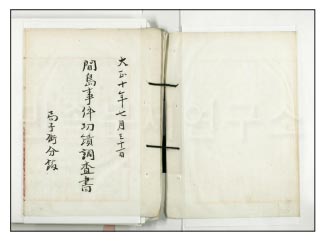 大正十年七月三十一日
間島事件功績調査書
局子街分館